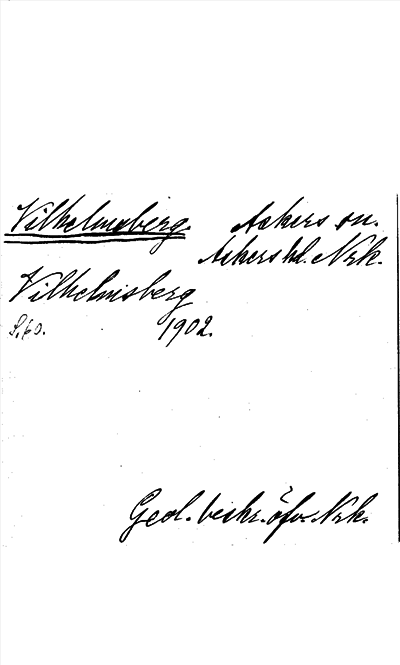 Vilhelmsberg. Askers sn.
Askers hd. Nrk.
Vilhelmsberg
S. 60. 1902.
Geol. beskr. öfv. Nrk.